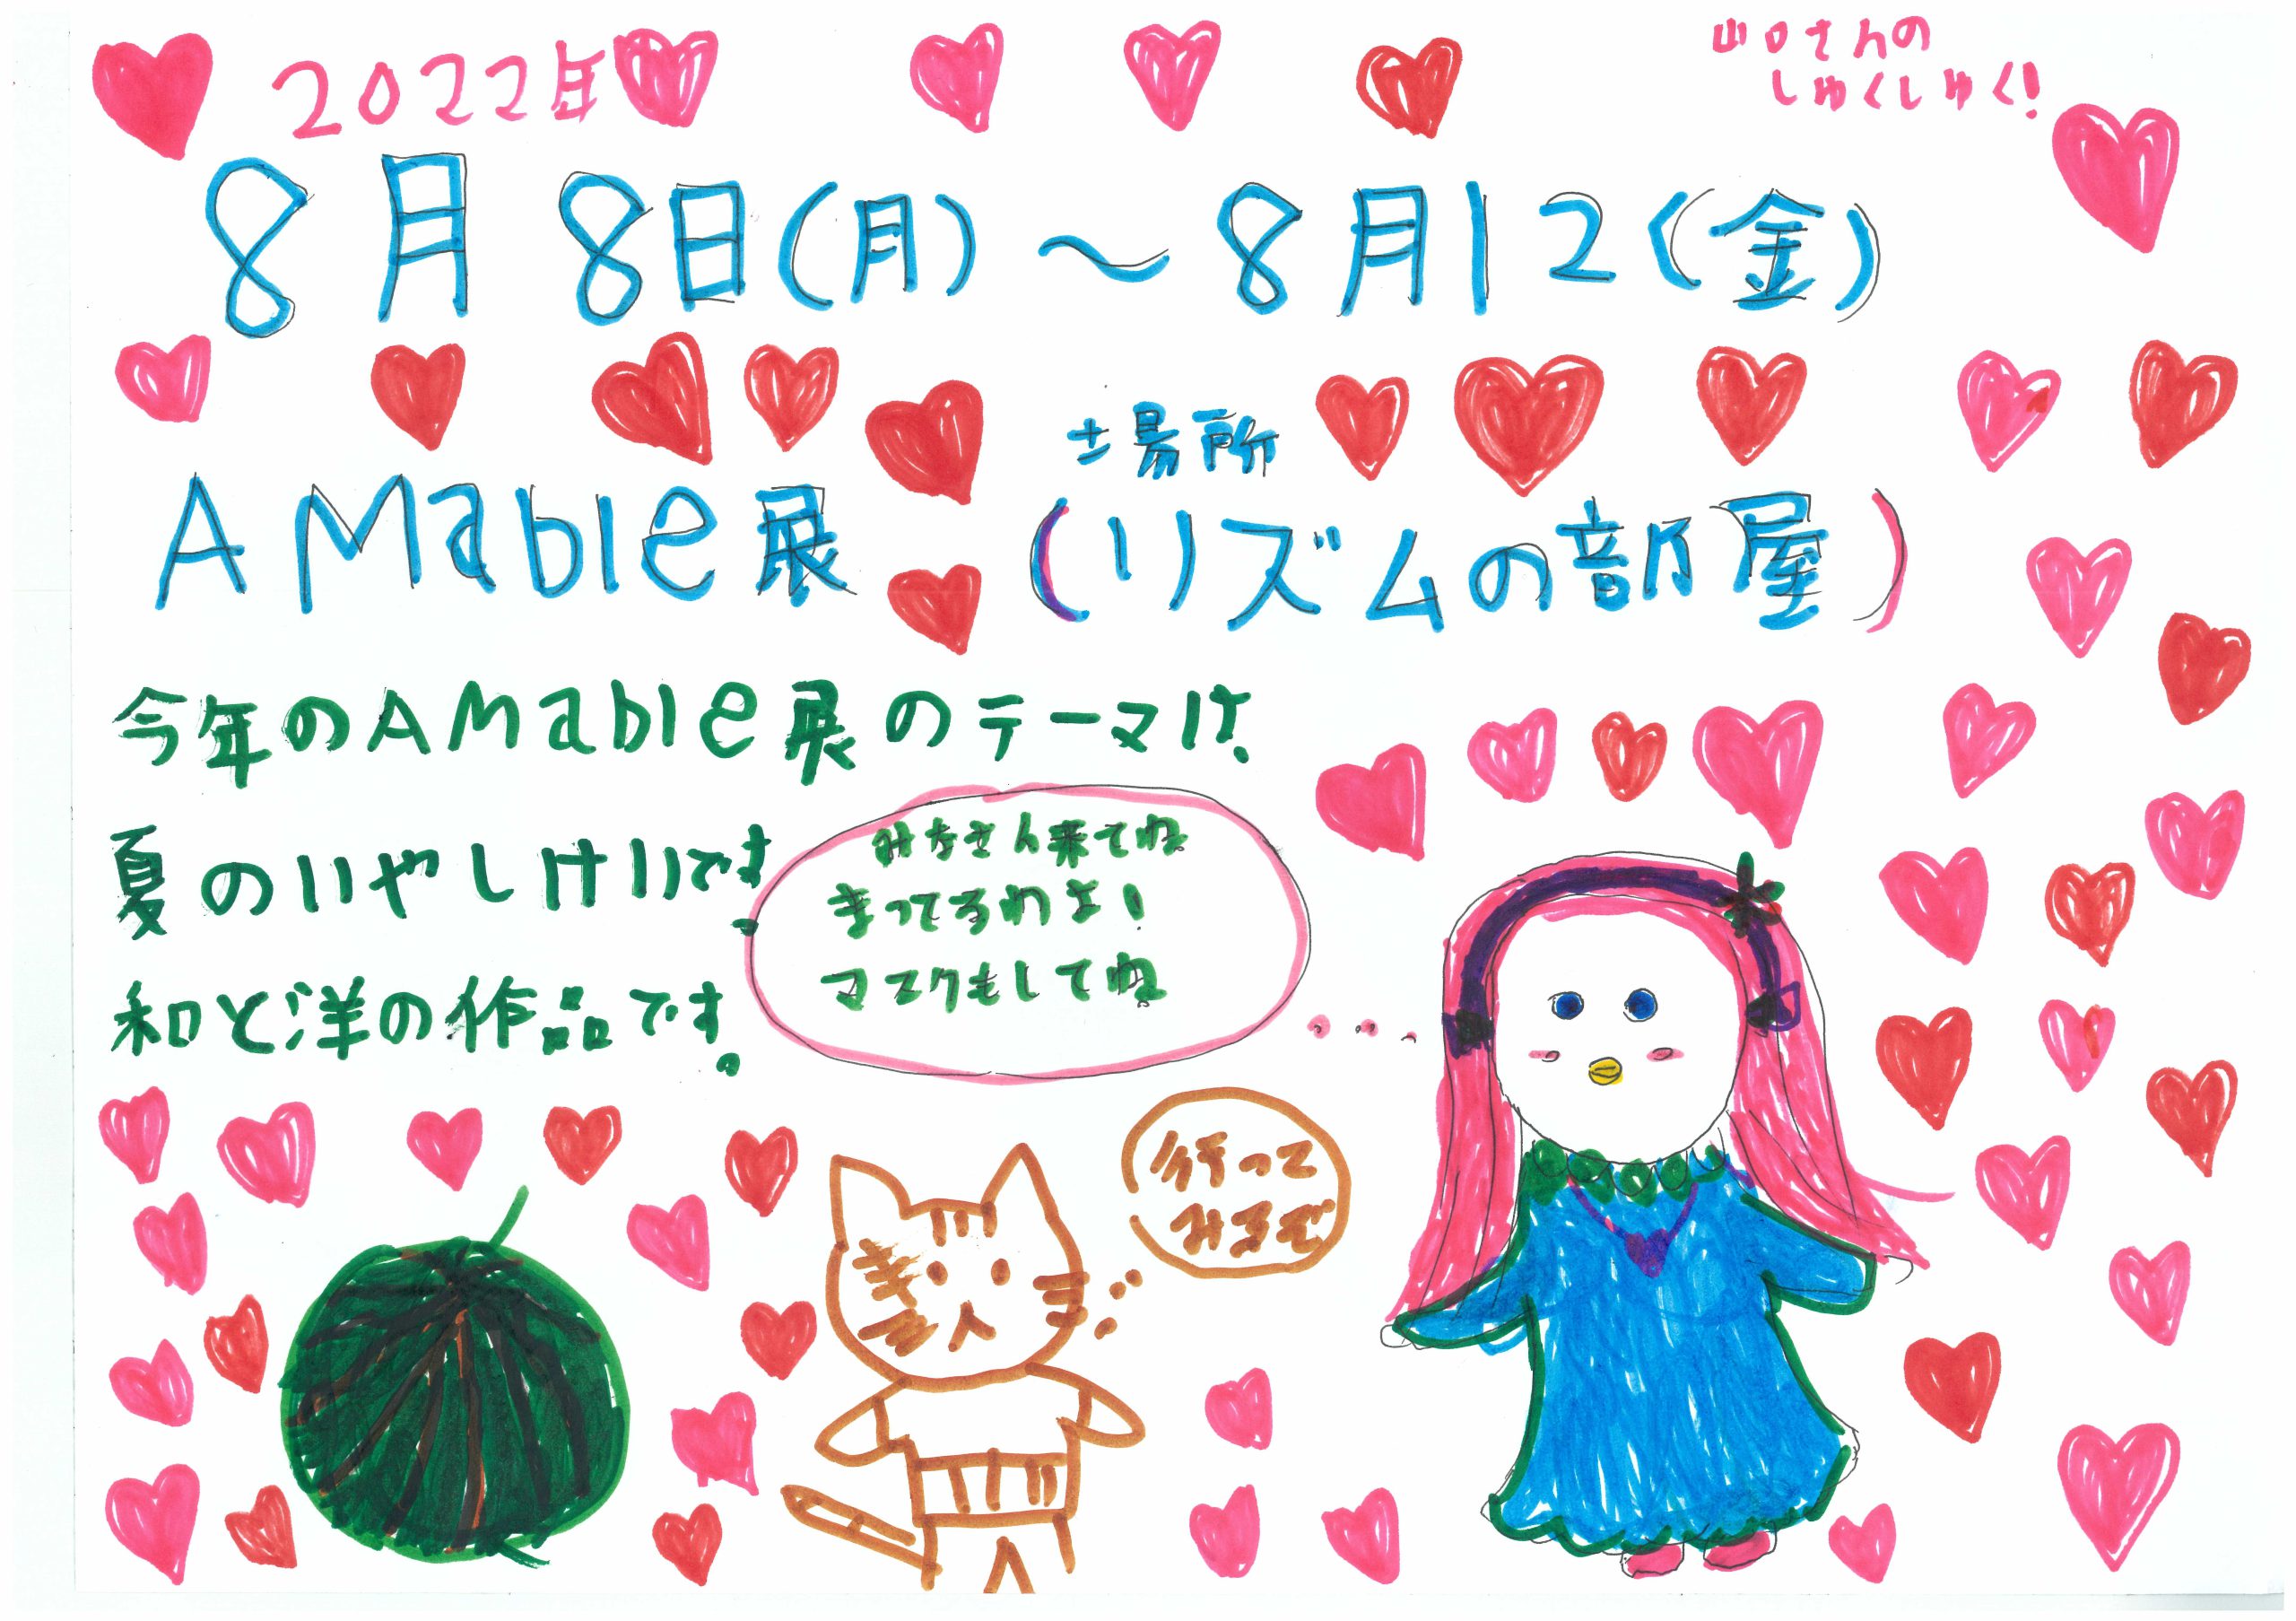 2022年
山口さんの
しゅくしゅく!
8月8日(月)～8月12(金)
場所
AMable展 (リズムの部屋)
今年のAMable展のテーマは、
夏のいやしけいです、
和と洋の作品です。
みなさん来てね
まってるわよ!
マスクもしてね
行って
みるぞ